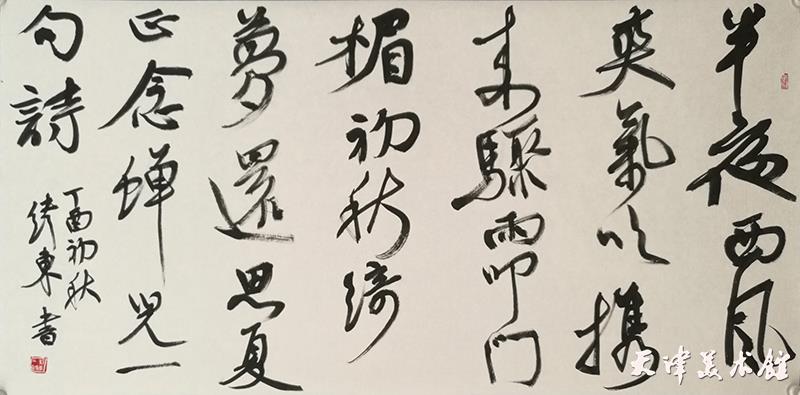 半夜西风
爽氣吹携
来驟雨叩门
楣初秋绮
夢還思夏
正念蝉児一
句詩
丁酉初秋
東書
天津美术馆